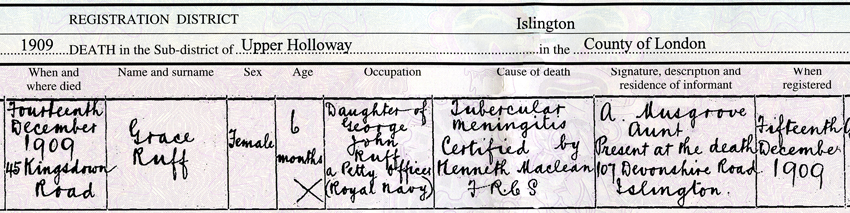 REGISTRATION DISTRICT Islington
1909 DEATH in the Sub-district of Upper Holloway in the County of London
When and where died
Name and surname
Sex
Age
Occupation
Cause of death
Signature, description and residence of informant
When registered
Fourteenth
December
1909
45 Kingsdown
Road
Grace
Ruff
Female
6
months
Daughter of
George
John
Ruff
a Petty Officer
(Royal Navy)
Tubercular
meningitis
Certified by
Henneth Maclean
F R C S
A. Musgrove
Aunt
Present at the death
107 Devonshire Road
Islington.
Fifteenth
December
1909